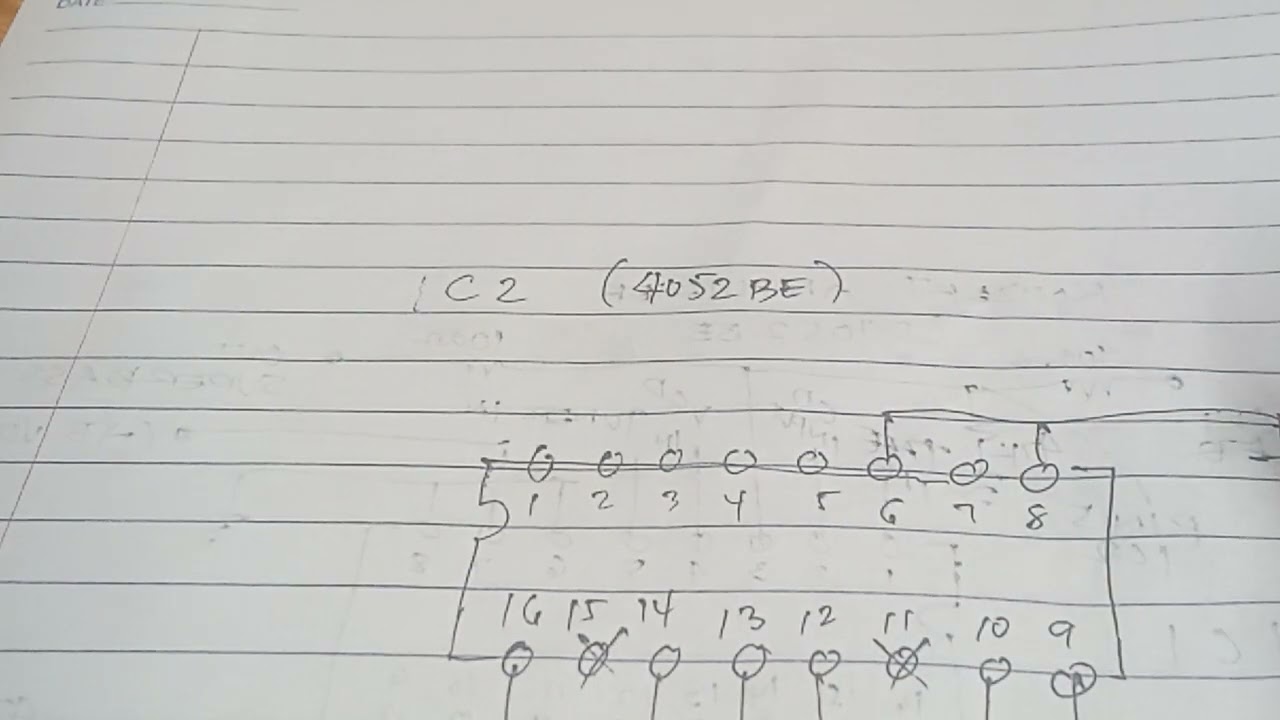 DATE
IC2 (4052BE)
1 2 3 4 5 6 7 8
16 15 14 13 12 11 10 9